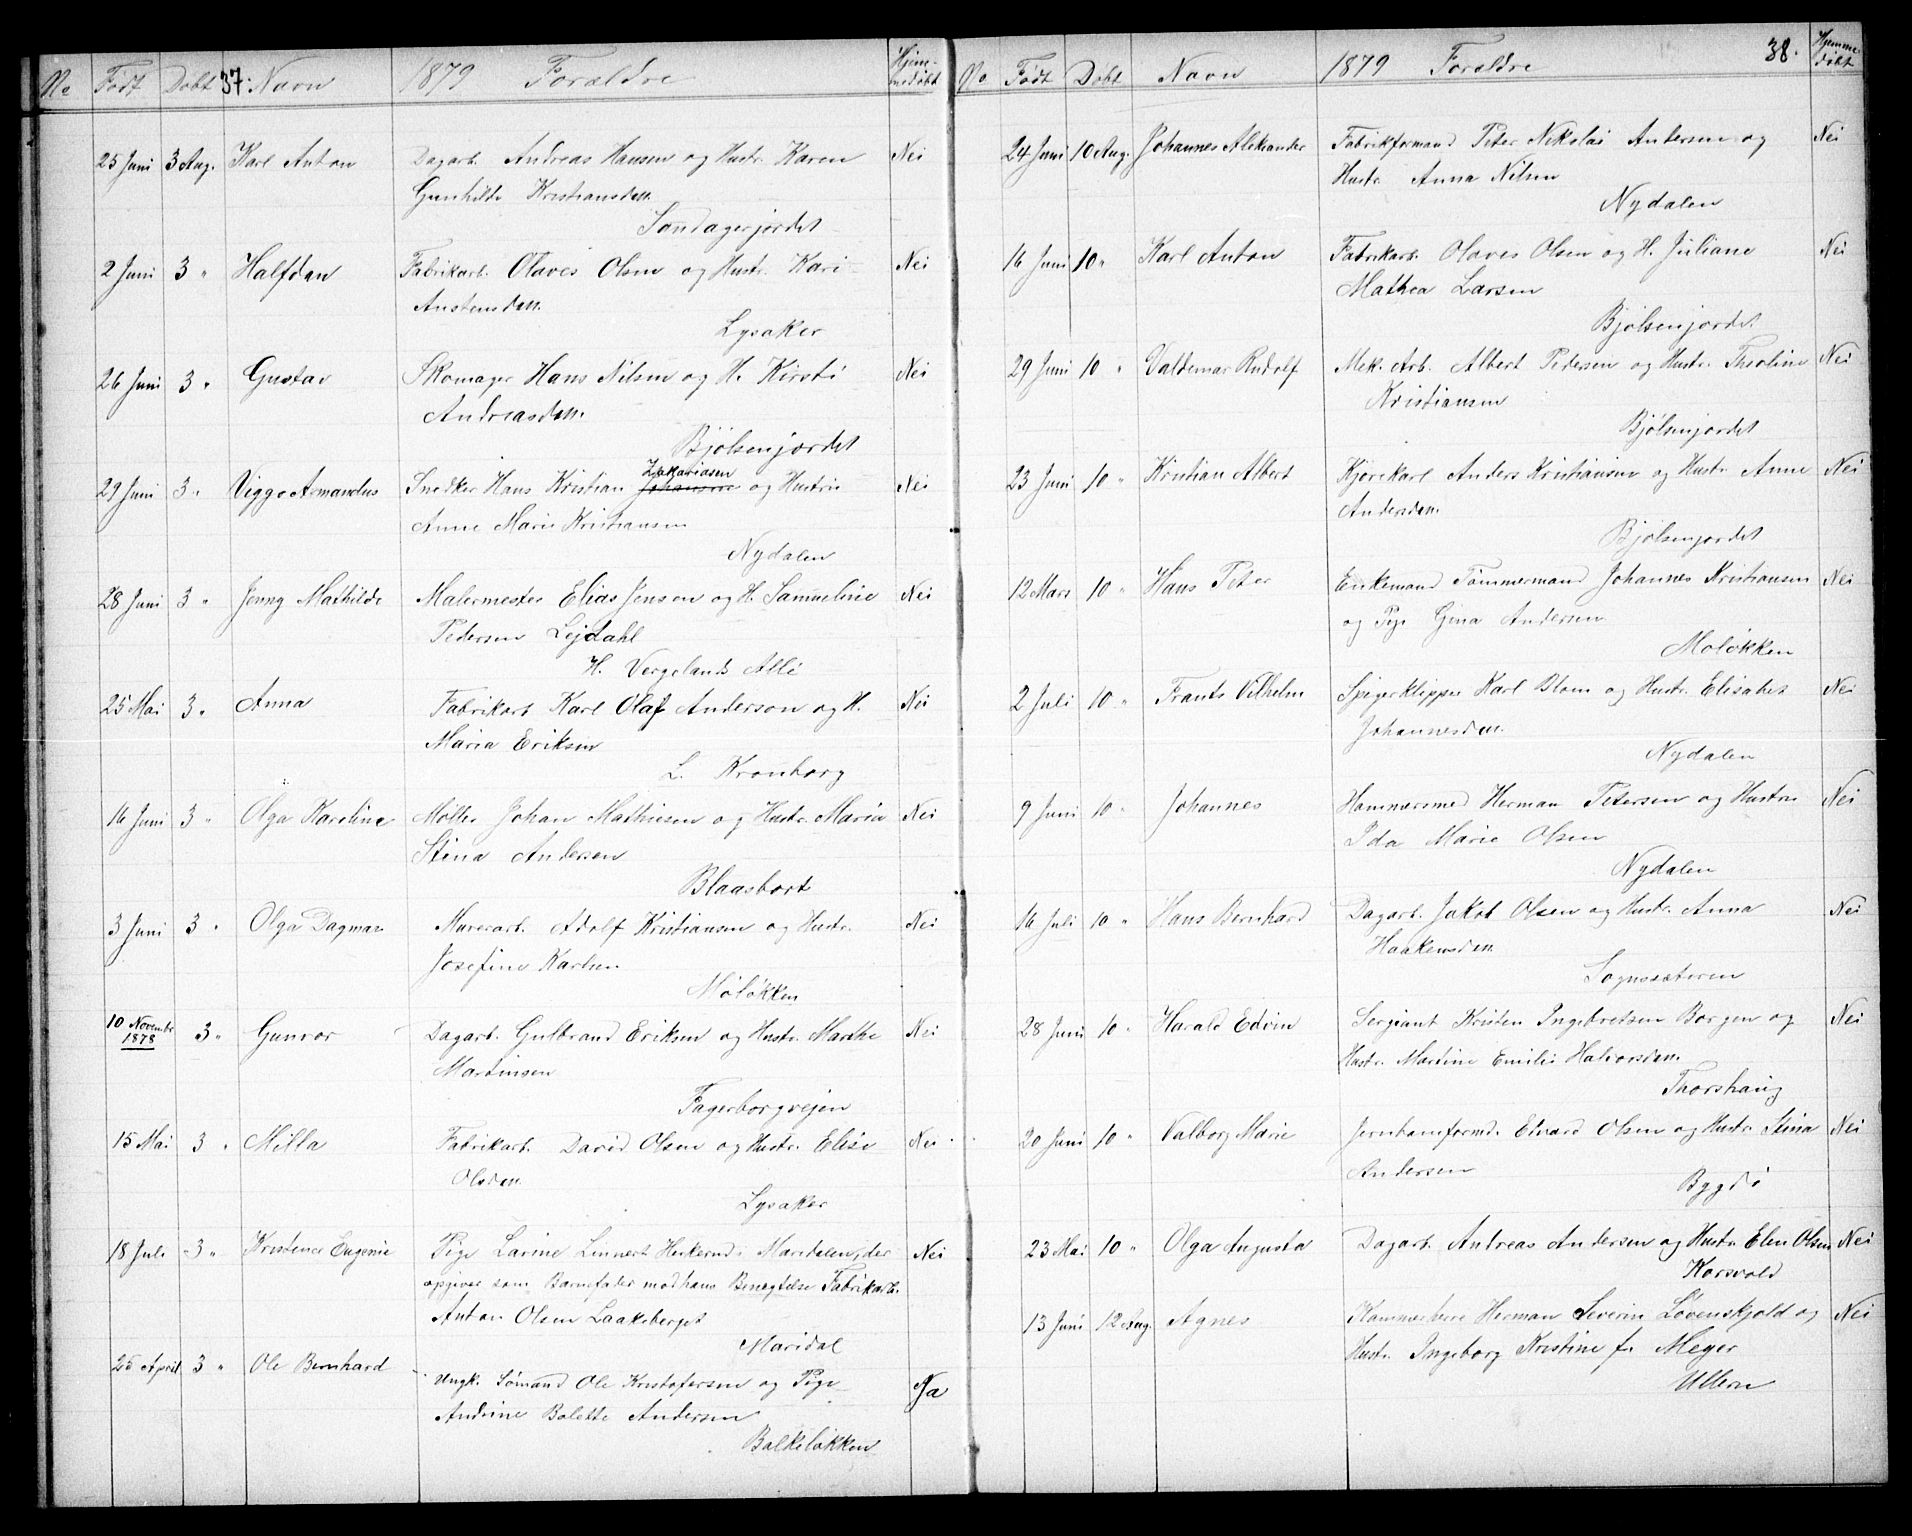 No Født Dobt 37. Navn 1879 Forældre Hjem-medøbt
25 Juni 3 Aug. Karl Anton Dagarb. Andreas Hansen og Hustr. Karen Nei
Gunhilde Kristiansdatt.
Sondagerjordet
2 Juni 3 " Halfdan Fabrikarb. Olaves Olsen og Hustr. Kari Nei
Austensdatt.
Lysaker
26 Juni 3 " Gustav Skomager Hans Nilsen og H. Kirsti Nei
Andreasdatt.
Bjølsenjordet
Zakariasen
29 Juni 3 " Viggo Armandus Snedker Hans Kristian Johansen og Hustru Nei
Anne Marie Kristiansen
Nydalen
28 Juni 3 " Jenny Mathilde Malermester Elias Jensen og H. Samueline Nei
Pedersen Lejdahl
H. Vergelands Allé
25 Mai 3 " Anna Fabrikarb. Karl Olaf Anderson og H. Nei
Maria Eriksen
L. Kronborg
16 Juni 3 " Olga Karoline Møller Johan Mathiesen og Hustr. Maria Nei
Stina Andersen
Blaasbort
3 Juni 3 " Olga Dagmar Murerarb. Adolf Kristiansen og Hustr. Nei
Josefine Karlsen
Møløkken
10 Novembr 1878 3 " Gunvor Dagarb. Gulbrand Eriksen og Hustr. Marthe Nei
Martinsen
Fagerborgvejen
15 Mai 3 " Milla Fabrikarb. David Olsen og Hustr. Elise Nei
Olsdatt.
Lysaker
18 Juli 3 " Kristence Eugenie Pige Larine Linnert Heikernd i Maridalen, der Nei
opgiver som Barnefader mod hans Benegtelse Fabrikarb.
Anton Olsen Laakeberget
Maridal
25 April 3 " Ole Bernhard Ungk. Sømand Ole Kristofersen og Pige Ja
Andrine Bolette Andersen
Balkeløkken
No Født Døbt Navn 1879 Forældre 38. Hjemme-døbt
24 Juni 10 Aug. Johannes Aleksander Fabrikformand Peter Nikolai Andersen og Nei
Hustr. Anna Nilsen
Nydalen
16 Juni 10 " Karl Anton Fabrikarb. Olaves Olsen og H. Juliane Nei
Mathea Larsen
Bjølsenjordet
29 Juni 10 " Valdemar Rudolf Mek. Arb. Albert Pedersen og Hustr. Theoline Nei
Kristiansen
Bjølsenjordet
23 Juni 10 " Kristian Albert Kjørekarl Anders Kristiansen og Hustr. Anne Nei
Andersdatt.
Bjølsenjordet
12 Mars 10 " Hans Peter Enkemand Tømmermand Johannes Kristiansen Nei
og Pige Gina Andersen
Moløkken
2 Juli 10 " Frants Vilhelm Spigerklipper Karl Blom og Hustr. Elisabet Nei
Johannesdatt.
Nydalen
9 Juni 10 " Johannes Hammersmed Herman Petersen og Hustru Nei
Ida Marie Olsen
Nydalen
16 Juli 10 " Hans Bernhard Dagarb. Jakob Olsen og Hustr. Anna Nei
Haakensdatt.
Sognssæteren
28 Juni 10 " Harald Edvin Sergiant Kristen Ingebretsen Borgen og Nei
Hustr. Martine Emilie Halvorsdatt.
Thorshaug
20 Juni 10 " Valborg Marie Jernbaneformd. Edvard Olsen og Hustr. Stina Nei
Andersen
Bygdø
23 Mai 10 " Olga Augusta Dagarb. Andreas Andersen og Hustr. Elen Olsen Nei
Korsvold
13 Juni 12 Aug. Agnes Kammerherre Herman Severin Løvenskjold og Nei
Hustr. Ingeborg Kristine f. Meyer
Ullern